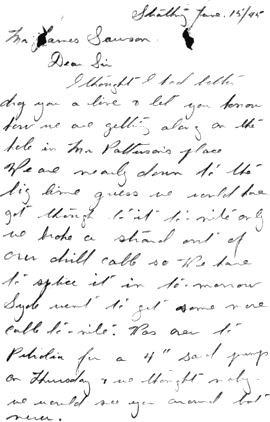 Strathroy June 15/95
Mr. James Lawson.
Dear Sir
I thought I had better
drop you a line & let you know
how we are getting along on the
hole in Mr Pattersons place
We are nearly down to the
big lime guess we would have
got through to it to-nite only
we broke a strand out of
our drill cable so We have
to splice it in to-morrow
went to get some more
cable to-nite. Was over to
Petrolia for a 4" sand pump
on Thursday & we thought
we would see you around but
never.